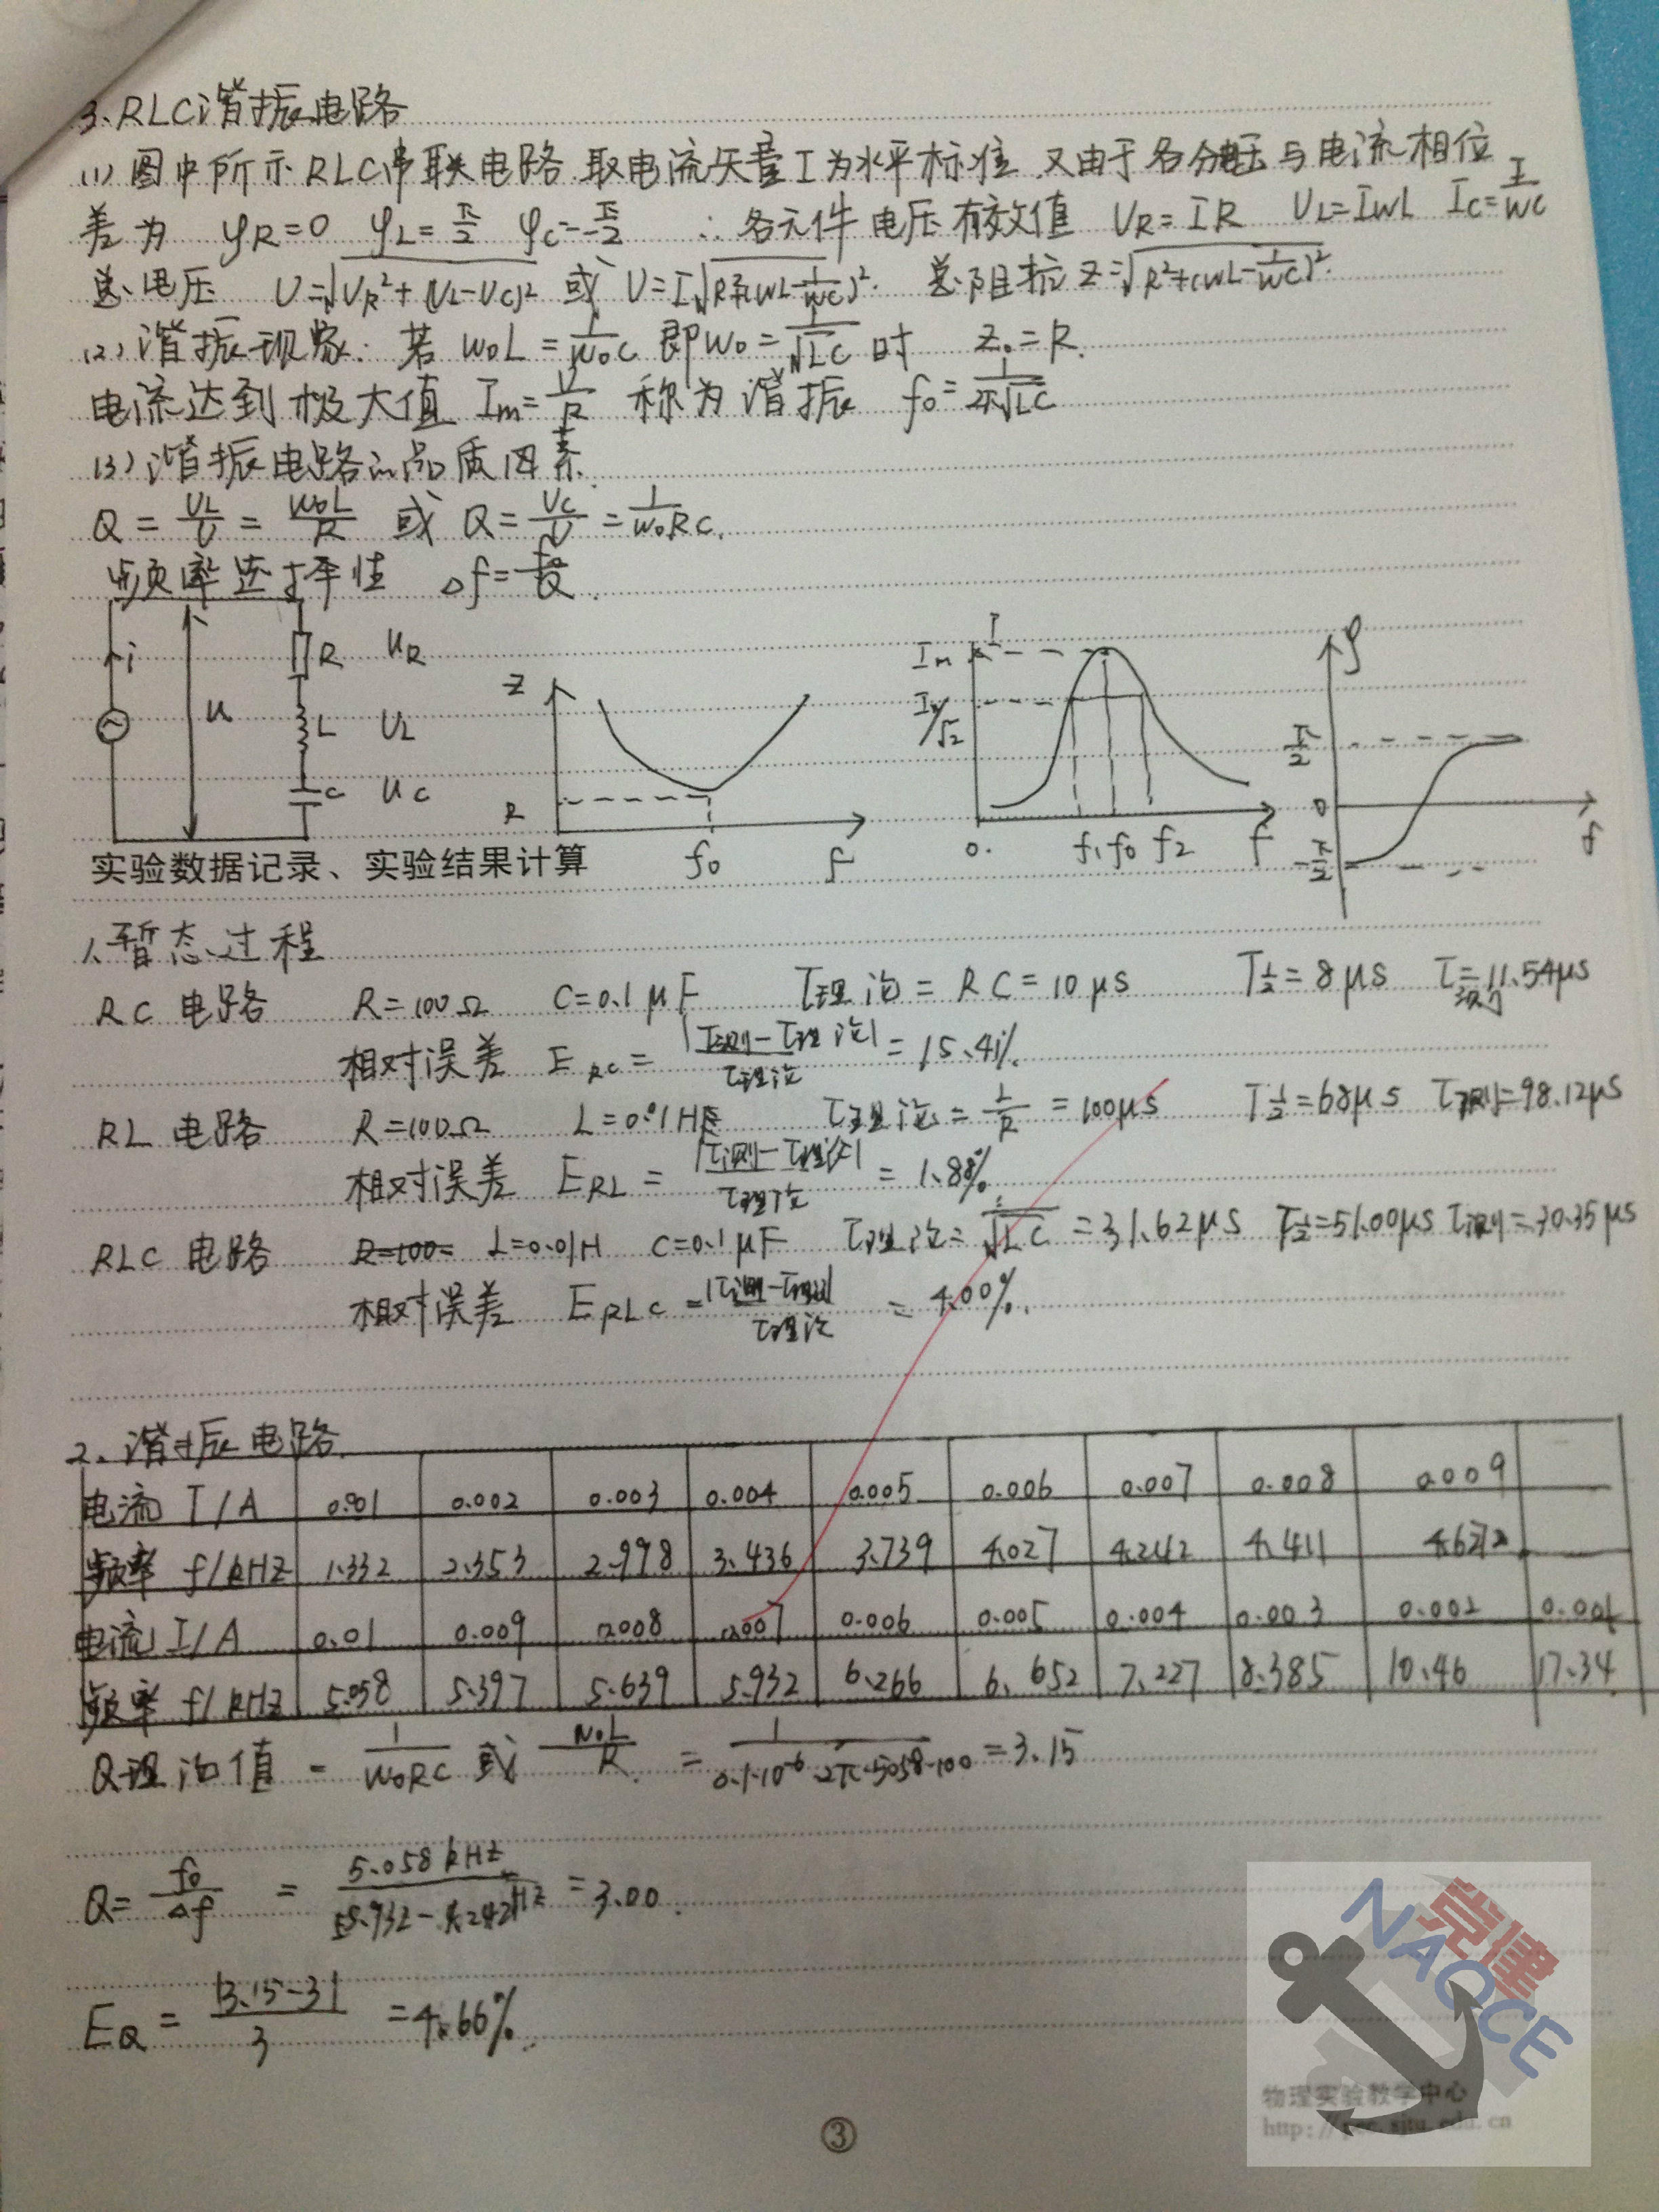 3、RLC谐振电路
(1) 图中所示RLC串联电路 取电流矢量I为水平标准,又由于各分电压与电流相位
差为 φR=0 φL=π/2 φC=-π/2 ∴各元件电压有效值 UR=IR UL=IWL IC=I/WC
总电压 U=√(UR²+(UL-UC)²) 或 U=I√(R²+(WL-1/WC)²). 总阻抗Z=√(R²+(WL-1/WC)²).
(2) 谐振现象: 若 W0L=1/W0C 即W0=1/√LC 时 Z0=R.
电流达到极大值 Im=U/R 称为谐振 f0=1/2π√LC
(3) 谐振电路的品质因素.
Q=UL/U=W0L/R 或 Q=UC/U=1/W0RC.
频率选择性 △f=f0/Q.
i u R UR L UL C UC
Z R f0 f
I Im Im/√2 0. f1 f0 f2 f
φ π/2 0 -π/2 f
实验数据记录、实验结果计算
1、暂态过程
RC 电路 R=100Ω C=0.1μF τ理论=RC=10μs T½=8μs τ测=11.54μs
相对误差 ERC=|τ测-τ理论|/τ理论=15.41%
RL 电路 R=100Ω L=0.01H τ理论=L/R=100μs T½=68μs τ测=98.12μs
相对误差 ERL=|τ测-τ理论|/τ理论=1.88%
RLC 电路 R=100 L=0.01H C=0.1μF τ理论=√LC=31.62μs T½=51.00μs τ测=30.35μs
相对误差 ERLC=|τ测-τ理论|/τ理论=4.00%.
2、谐振电路
电流 I/A 0.001 0.002 0.003 0.004 0.005 0.006 0.007 0.008 0.009
频率 f/kHz 1.332 2.353 2.998 3.436 3.739 4.027 4.242 4.411 4.672
电流 I/A 0.01 0.009 0.008 0.007 0.006 0.005 0.004 0.003 0.002 0.001
频率 f/kHz 5.058 5.397 5.639 5.932 6.266 6.652 7.227 8.385 10.46 17.34
Q理论值=1/W0RC 或 W0L/R=1/0.1·10⁻⁶·2π·5058·100=3.15
Q=f0/△f=5.058kHz/5.932-4.242kHz=3.00.
EQ=|3.15-3|/3=4.66%.
党建
NAOCE
物理实验教学中心
http://pec.sjtu.edu.cn
③